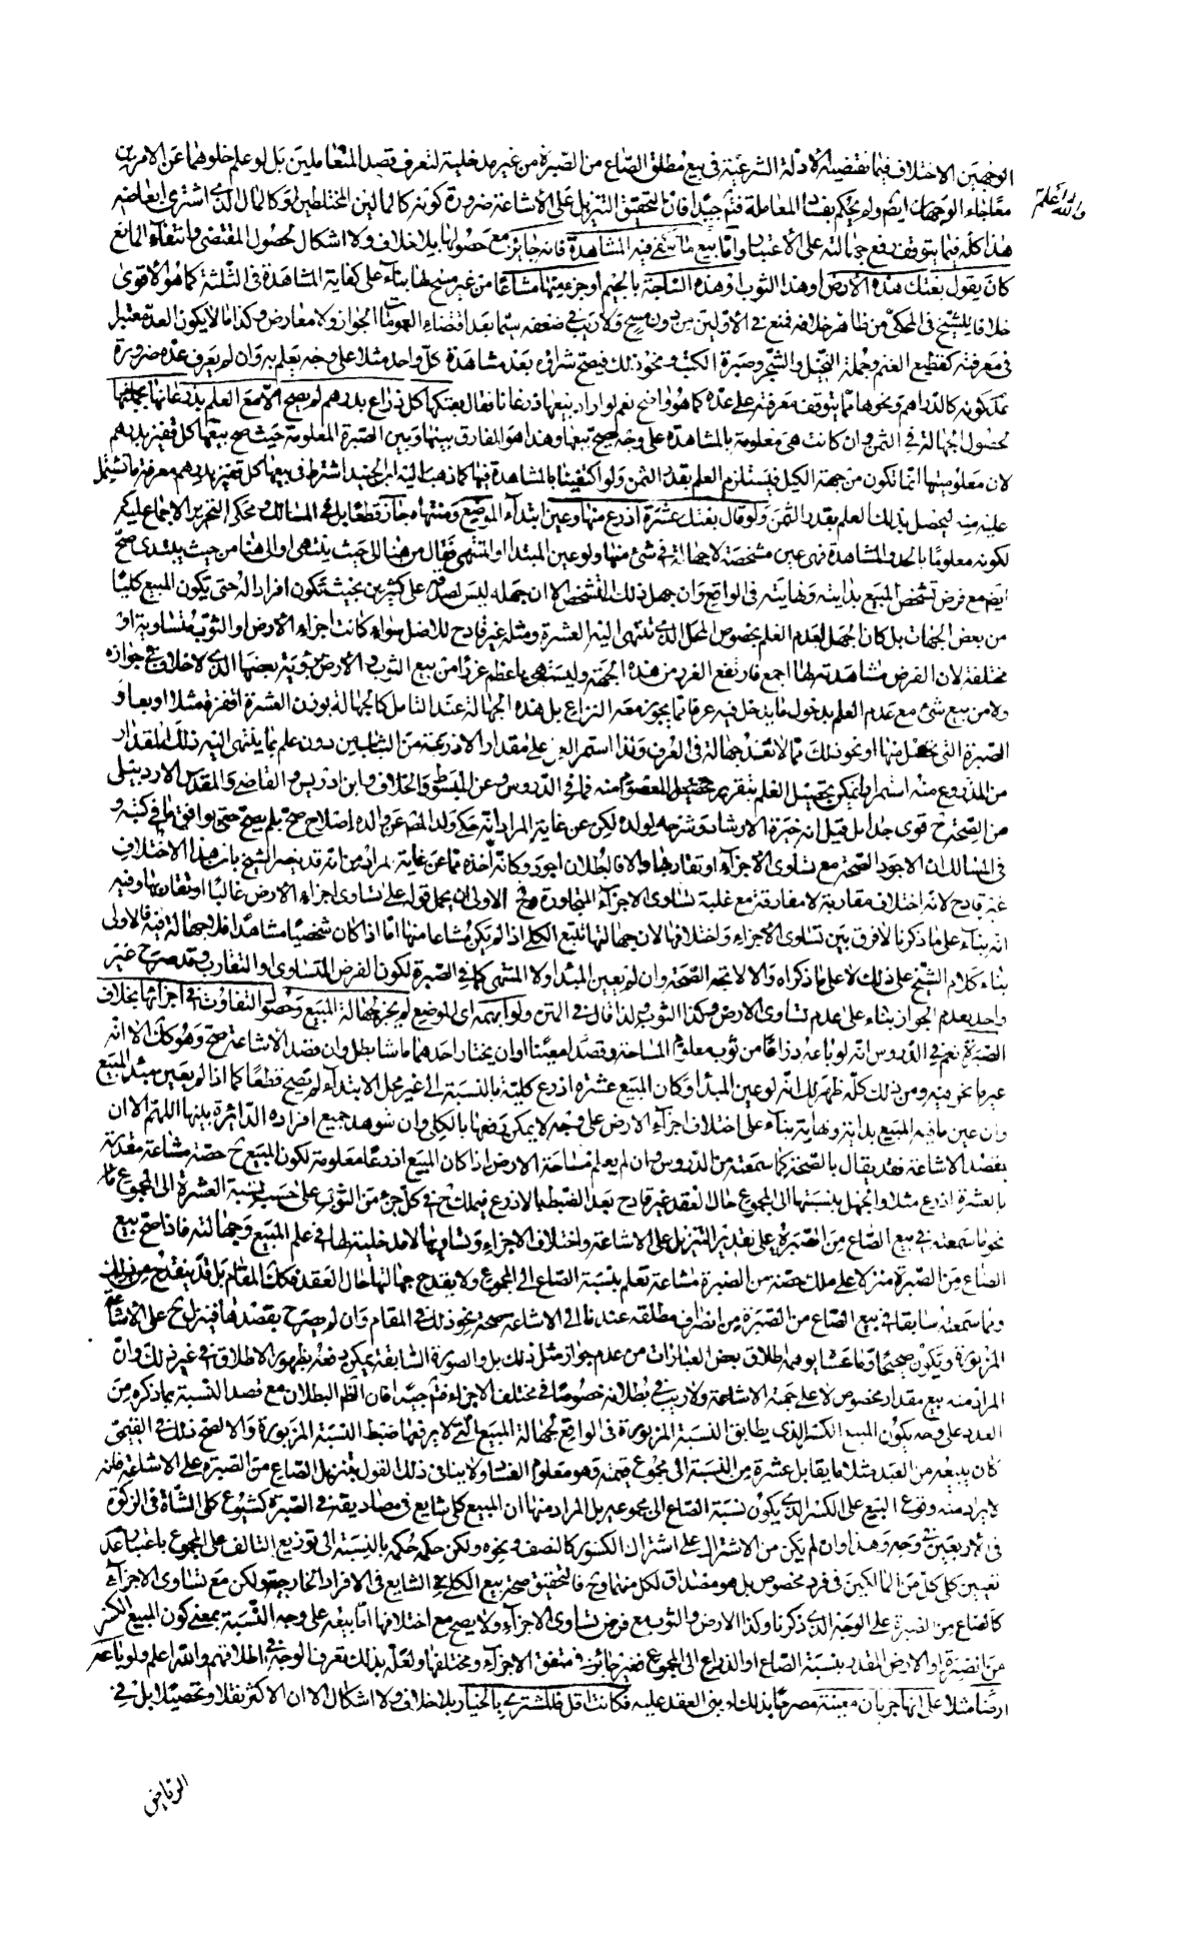 الوجهين الاختلاف فيما تقتضيه الأدلة الشرعية في بيع مطلق الصاع من الصبرة من غير مدخلية لتعرف قصد المتعاملين بل لو علم خلوهما عن الامرين
معا جاء الوجهان ايضا ولم يحكم بفساد المعاملة فتأمل جيدا فان التحقيق التنزيل على الاشاعة ضرورة كونه كالمالين المختلطين وكالمال الذي اشترى ابعاضه
والله أعلم
هذا كله فيما يتوقف رفع جهالته على الاعتبار واما بيع ما يكفي فيه المشاهدة فانه جائز مع حصولها بلا خلاف ولا اشكال لحصول المقتضى وانتفاء المانع
كان يقول بعتك هذه الأرض او هذا الثوب او هذه الساجة بالجيم او جزء منها مشاعا من غير مسح لها بناء على كفاية المشاهدة في الثلثة كما هو الاقوى
خلافا للشيخ في المحكى من ظاهر خلافه فمنع في الاولين من دون مسح ولا ريب في ضعفه سيما بعد اقتضاء العمومات الجواز ولا معارض وكذا ما لا يكون العد معتبرا
في معرفته كقطيع الغنم وجملة النخيل والشجر وصبرة الكتب ونحو ذلك فيصح شراؤه بعد مشاهدة كل واحد مثلا على وجه يعلم به وان لم يعرف عدّه ضرورة
عدم كونه كالدراهم ونحوها مما يتوقف معرفته على عدّه كما هو واضح نعم لو اراد بيعها ذرعانا فقال بعتكها كل ذراع بدرهم لم يصح الا مع العلم بذرعانها بجملتها
لحصول الجهالة في الثمن وان كانت هي معلومة بالمشاهدة على وجه يصح بيعها وهذا هو الفارق بينها وبين الصبرة المعلومة حيث صح بيعها كل قفيز بدرهم
لان معلوميتها انما تكون من جهة الكيل فيستلزم العلم بقدر الثمن ولو اكتفينا بالمشاهدة فيها كما ذهب اليه ابن الجنيد اشترط في بيعها كل قفيز بدرهم معرفة ما تشتمل
عليه منه ليحصل بذلك العلم بقدر الثمن ولو قال بعتك عشرة اذرع منها وعين ابتداء الموضع ومنتهاه جاز قطعا بل في المسالك ومحكى التحرير الاجماع عليه
لكونه معلوما بالحد والمشاهدة فهى عين مشخصة لا جهالة في شئ منها ولو عين المبتدأ او المنتهى فقال من هنا الى حيث ينتهى او الى هنا من حيث يبتدى صح
ايضا مع فرض تشخص المبيع بدايته ونهايته في الواقع وان جهل ذلك التشخص الا ان جهله ليس لصدقه على كثيرين بحيث تكون افرادا له حتى يكون المبيع كليا
من بعض الجهات بل كان الجهل لعدم العلم بخصوص المحل الذي تنتهى اليه العشرة ومثله غير قادح للاصل سواء كانت اجزاء الأرض او الثوب متساوية او
مختلفة لان الفرض مشاهدته لها اجمع فارتفع الغرر من هذه الجهة وليست هي باعظم غررا من بيع الثوب والارض برؤية بعضها الذي لا خلاف في جوازه
ولا من بيع شئ مع عدم العلم بدخول ما يدخل فيه عرفا مما يجوز معه النزاع بل هذه الجهالة عند التامل كالجهالة بوزن العشرة اقفزة مثلا او بعدد
الصبرة التي منها او نحو ذلك مما لا تعد جهالة في العرف ولذا استمر العمل على مقدار الاذرعة من الثياب من دون علم بما ينتهى اليه ذلك المقدار
من المذروع منه استمرارا يمكن تحصيل العلم بتقرير المعصوم منه فما في الدروس وعن المبسوط والخلاف وابن ادريس والقاضي والمقدس الاردبيلى
من الصحة ح قوى جدا بل قيل انه خيرة الارشاد وشرحه لولده لكن عن غاية المراد انه حكى ولد المصنف عن والده اصلاح صح بلم يصح حتى يوافق ما في كتبه و
في المسالك ان الاجود الصحة مع تساوى الاجزاء او تقاربها والا فالبطلان اجود وكانه اخذه مما عن غاية المراد من انه قد يجيب الشيخ بان هذا الاختلاف
غير قادح لانه اختلاف مقاربة لا مفارقة مع غلبة تساوى الاجزاء المتجاورة الاولى ان يحمل قوله على تساوى اجزاء الارض غالبا او تقاربها وفيه
انه بناء على ما ذكرنا لا فرق بين تساوى الاجزاء واختلافها لان جهالتها تتبع الكلي اذا لم يكن مشاعا منها اما اذا كان شخصيا مشاهدا فلا جهالة فيه فالاولى
بناء كلام الشيخ على ذلك لا على ما ذكراه والا لاتجه الصحة وان لم يعين المبدأ ولا المنتهى كما في الصبرة لكون الفرض المتساوى او التقارب وقد صرح غير
واحد بعدم الجواز بناء على عدم تساوى الارض وكذا الثوب ولذا قال في المتن ولو ابهمه اى الموضع لم يجز لجهالة المبيع وحصول التفاوت في اجزائها بخلاف
الصبرة نعم في الدروس انه لو باعه ذراعا من ثوب معلوم المساحة وقصدا معينا او ان يختار احدهما ما شاء بطل وان قصد الاشاعة صح وهو كك الا انه
عبر بما نحو فيه ومن ذلك كله ظهر لك انه لو عين المبدأ وكان المبيع عشرة اذرع كلية بالنسبة الى غير محل الابتداء لم تصح قطعا كما اذا لم يعين مبدأ المبيع
وان عين ما فيه المبيع بداية ونهاية بناء على اختلاف اجزاء الارض على وجه لا يمكن رفعها بالكلي وان شوهد جميع افراده الدائرة بينها اللهم الا ان
يقصد الاشاعة فقد يقال بالصحة كما سمعته من الدروس وان لم يعلم مساحة الارض اذا كان المبيع اذرعا معلومة لكون المبيع ح حصة مشاعة مقدرة
بالعشرة اذرع مثلا والجهل بنسبتها الى المجموع حال العقد غير قادح بعد الضبط بالاذرع فيملك ح في كل جزء من الثوب على حسب نسبة العشرة الى المجموع على
نحو ما سمعته في بيع الصاع من الصبرة على تقدير التنزيل على الاشاعة واختلاف الاجزاء وتساويها لا مدخلية لها في علم المبيع وجهالته فاذا صح بيع
الصاع من الصبرة منزلا على ملك حصته من الصبرة مشاعة تعلم بنسبة الصاع الى المجموع ولا يقدح جهالتها حال العقد فكك المقام بل قد ينقدح من ذلك
ومما سمعته سابقا في بيع الصاع من الصبرة من انصراف مطلقه عندنا الى الاشاعة صحة نحو ذلك في المقام وان لم يصرح بقصدها فينزل ح على الاشاعة
المزبورة ويكون صحيحا وما عساه يوهمه اطلاق بعض العبارات من عدم جواز مثل ذلك بل والصورة السابقة يمكن دفعه بظهور الاطلاق في غير ذلك وان
المراد منه بيع مقدار مخصوص لا على جهة الاشاعة ولا ريب في بطلانه خصوصا في مختلف الاجزاء فتأمل جيدا فان الظ البطلان مع قصد النسبة بما ذكره من
العدد على وجه يكون المبيع الكسر الذي يطابق النسبة المزبورة في الواقع لجهالة المبيع التي لا يرفعها ضبط النسبة المزبورة والا لصح ذلك في القيمى
كان يبيعه من العبد مثلا ما يقابل عشرة من النسبة الى مجموع قيمته وهو معلوم الفساد ولا ينافي ذلك القول بتنزيل الصاع من الصبرة على الاشاعة فانه
لا يراد منه وقوع البيع على الكسر الذي يكون نسبة الصاع الى مجموعه بل المراد منها ان المبيع كلي شايع في مصاديقه في الصبرة كشيوع كلى الشاة في الزكوة
في الاربعين في وجه وهذا وان لم يكن من الاشتراك على اشتراك الكسور كالنصف ونحوه ولكن حكمه حكمه بالنسبة الى توزيع التالف على المجموع باعتبار عدم
تعيين كلى كل من المالكين في فرد مخصوص بل هو مصداق لكل منهما وح فالتحقيق صحة بيع الكلي الشايع في الافراد الخارجية ولكن مع تساوى الاجزاء
كالصاع من الصبرة على الوجه الذي ذكرنا وكذا الارض والثوب مع فرض تساوى الاجزاء ولا يصح مع اختلافها اما بيعه على وجه النسبة بمعنى كون المبيع الكسر
من الصبرة او الارض المقدر بنسبة الصاع او الذراع الى المجموع فغير جائز في متفق الاجزاء ومختلفها ولعله بذلك تعرف الوجه في اطلاقهم والله اعلم ولو باعه
ارضا مثلا على انها جربان معينة مصرحا بذلك او بنى العقد عليه فكانت اقل فللمشترى بالخيار بلا خلاف ولا اشكال الا ان الاكثر نقلا وتحصيلا بل في
الرياض